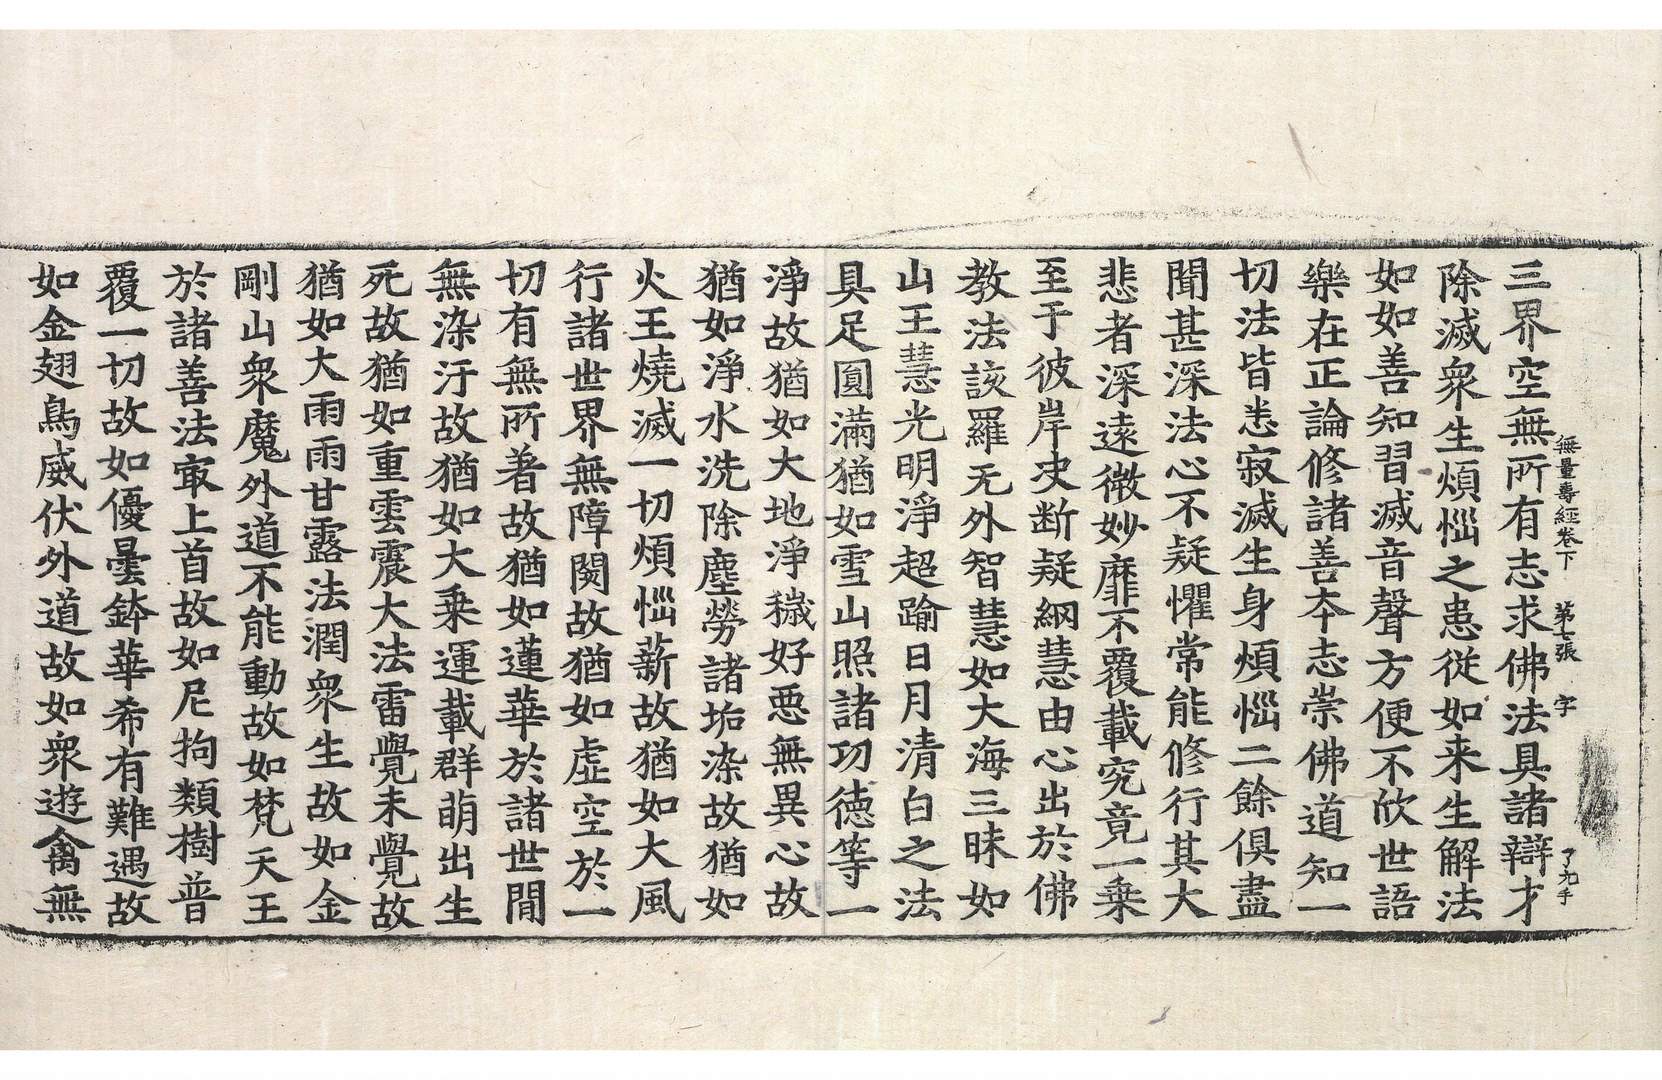 無量壽經卷下　第七張　字
三界空無所有志求佛法具諸辯才
除滅衆生煩惱之患從如来生解法
如如善知習滅音聲方便不欣世語
樂在正論修諸善夲志崇佛道知一
切法皆悉寂滅生身煩惱二餘俱盡
聞甚深法心不疑懼常能修行其大
悲者深遠微妙靡不覆載究竟一乗
至于彼岸决断疑網慧由心出於佛
教法該羅无外智慧如大海三昧如
山王慧光明淨超踰日月清白之法
具足圎滿猶如雪山照諸功德等一
淨故猶如大地淨穢好悪無異心故
猶如淨水洗除塵勞諸垢染故猶如
火王燒滅一切煩惱薪故猶如大風
行諸世界無障閡故猶如虛空於一
切有無所著故猶如蓮華於諸世閒
無染汙故猶如大乗運載群萌出生
死故猶如重雲震大法雷覺未覺故
猶如大雨雨甘露法潤衆生故如金
剛山衆魔外道不能動故如梵天王
於諸善法㝡上首故如尼拘類樹普
覆一切故如優曇鉢華希有難遇故
如金翅鳥威伏外道故如衆遊禽無